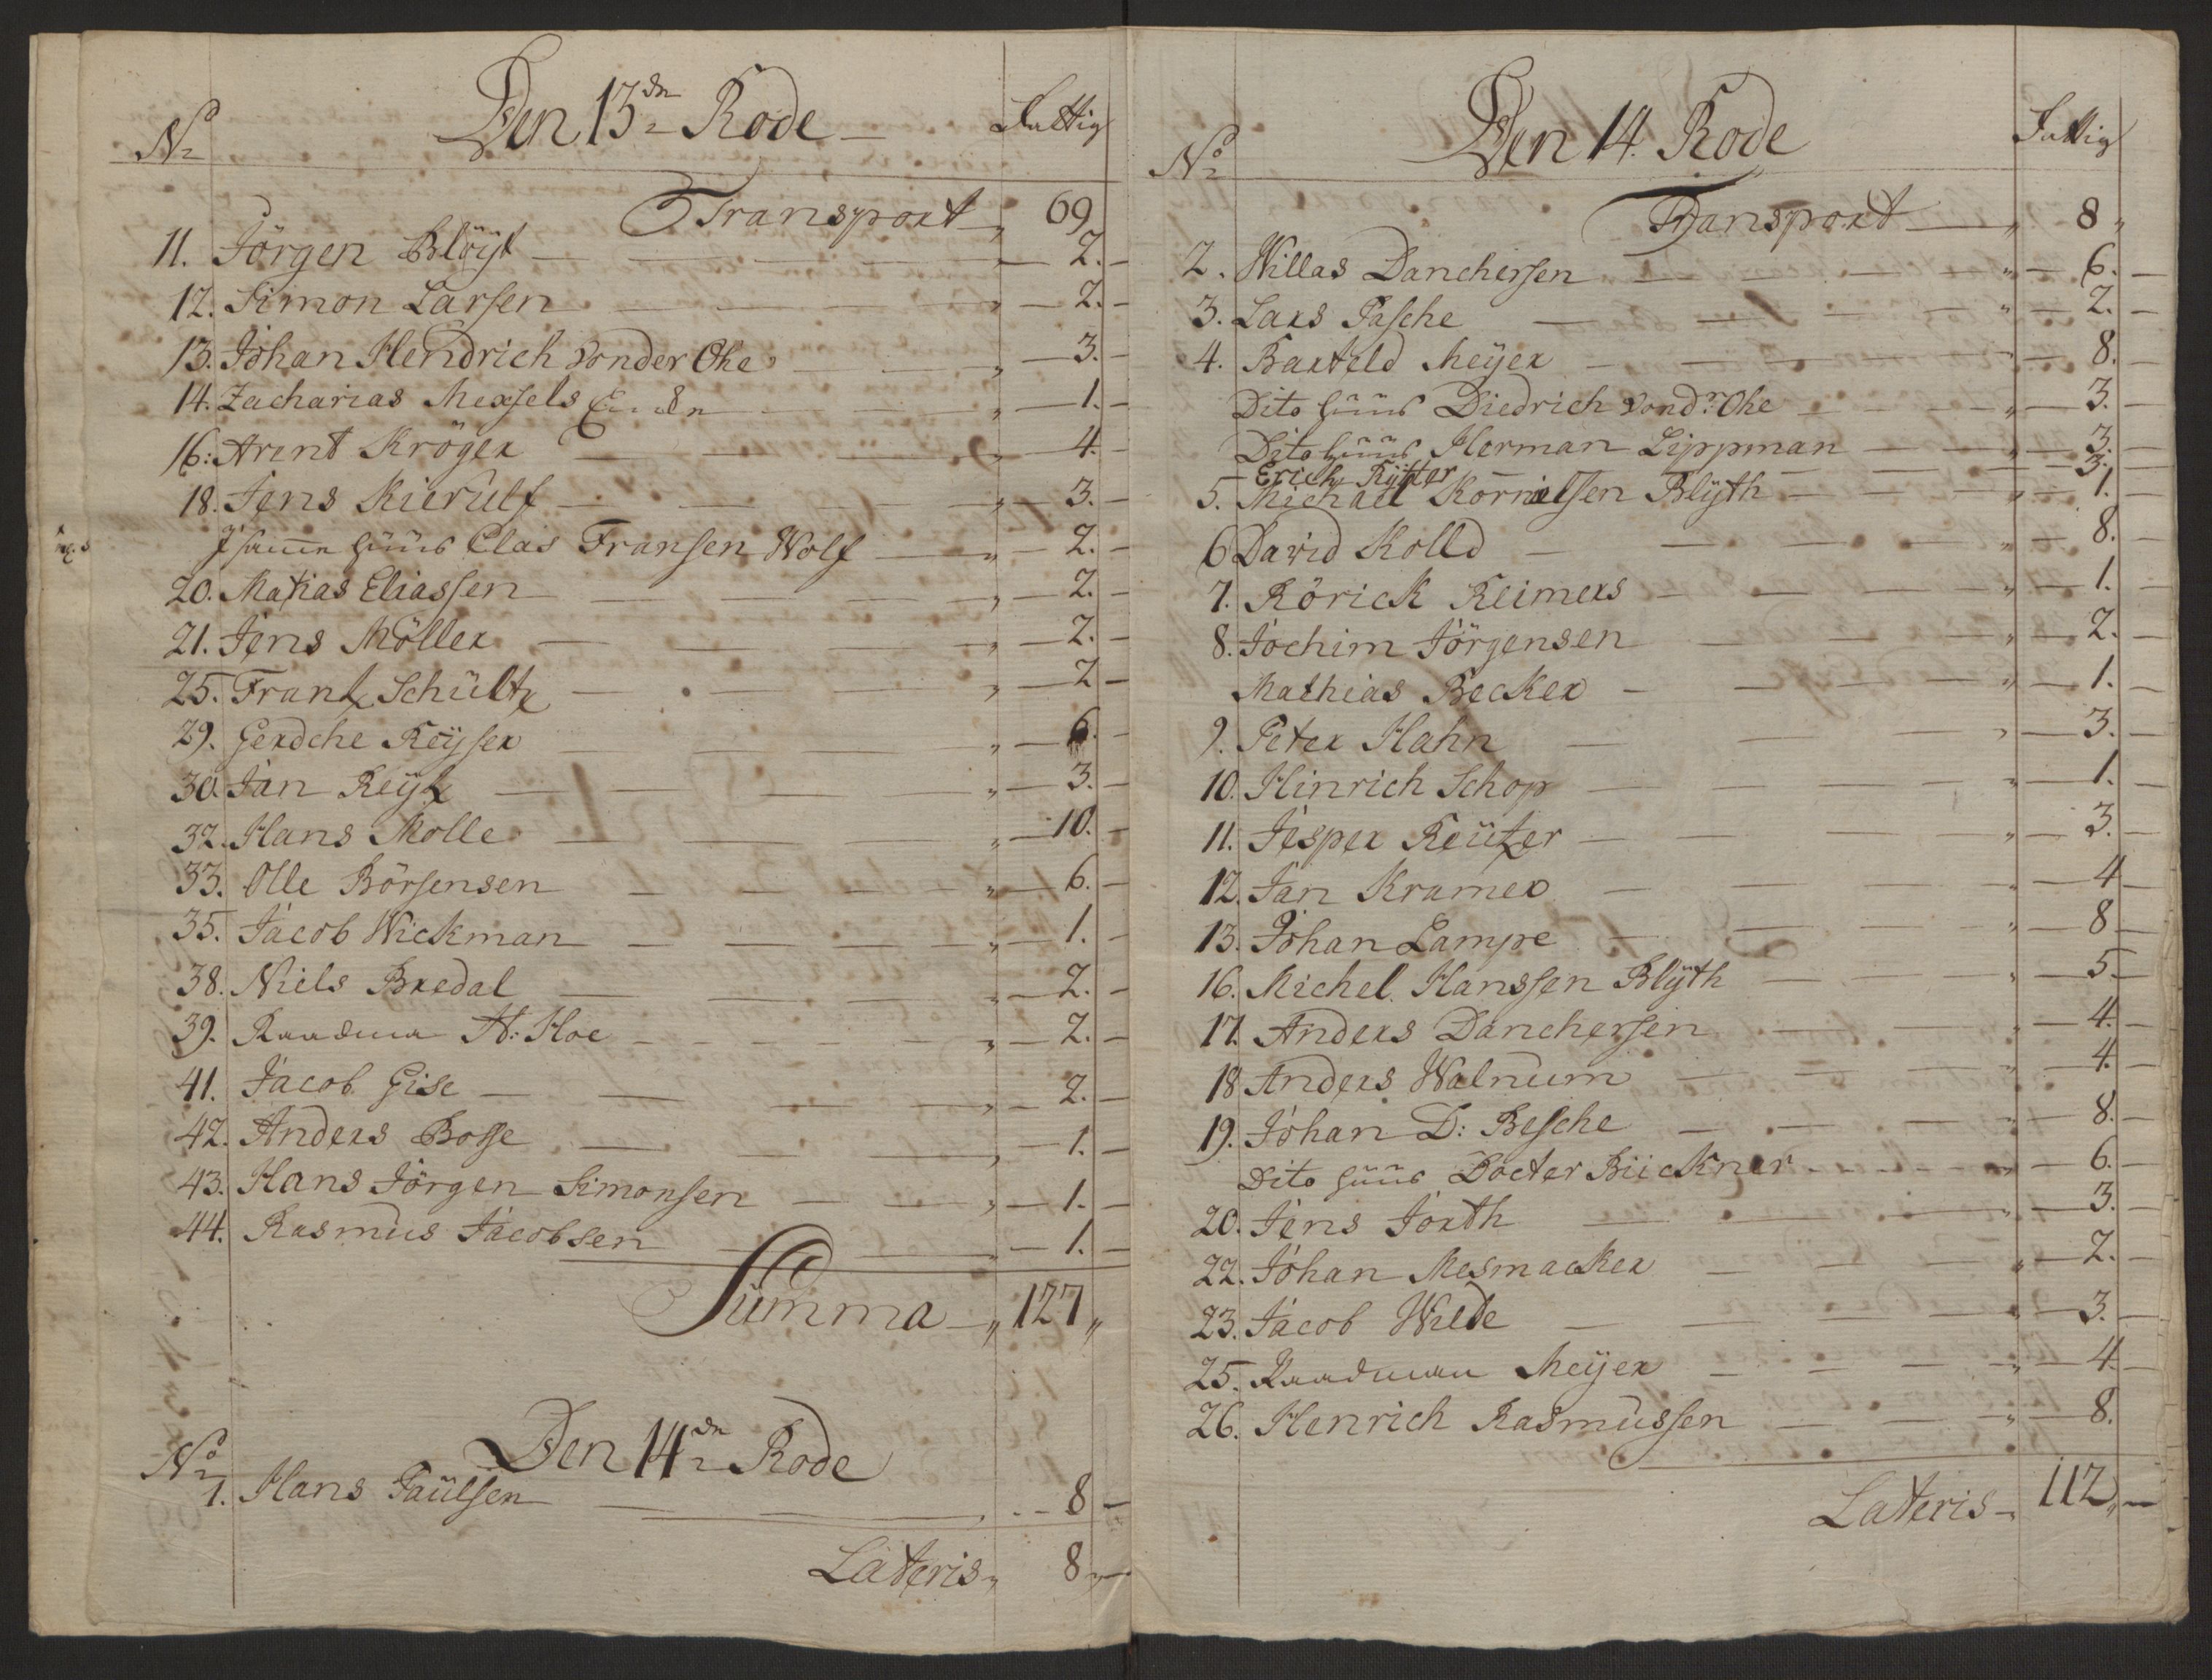 No Den 13de Rode Fattig
Transport „ 69
11. Jörgen Blöyt „ 2.
12. Simon Larsen „ 2.
13. Johan Hendrich Vonder Ohe „ 3.
14. Zacharias Mexsels „ 1.
16: Arent Kröger 4.
18. Jens Kierülf „ 3.
Clas Fransen Wolf „ 2.
20. Matias Eliassen „ 2.
21. Jens Möller „ 2.
25. Frantz Schültz „ 2
29. Gerdche Reyser „ 6.
30. Jan Reytz „ 3.
32. Hans Molle „ 10.
33. Olle Börsensen „ 6.
35. Jacob Wickman „ 1.
38. Niels Bredal „ 2.
39. Raadman H: Hoe „ 2.
41. Jacob Gise „ 2.
42. Anders Bosse „ 1.
43. Hans Jörgen Simonsen „ 1.
44. Rasmus Jacobsen „ 1.
Summa „ 127 „
No Den 14de Rode
1. Hans Paülsen 8
Lateris „ 8
No Den 14. Rode Fattig
Transport „ 8 „
2. Willas Danchersen „ 6.
3. Lars Pasche „ 2.
4. Barteld Meyer „ 8.
Dito Huus Diedrich Vondr Ohe „ 3.
Dito Huus Herman Lippman „ 3.
Erich Rytter 3.
5. Michael Kornielsen Blyth „ 1.
6 David Kolld „ 8.
7. Rörick Reimers „ 1.
8. Jochim Jörgensen „ 2.
Mathias Becker „ 1.
9. Peter Hahn „ 3.
10. Hinrich Schop „ 1.
11. Jesper Reützer „ 3.
12. Jan Kramer „ 4
13. Johan Lampe „ 8
16. Michel Hanssen Blyth „ 5
17. Anders Danchersen „ 4.
18 Anders Walnum „ 4.
19. Johan D: Besche „ 8.
Dito Huus Docter Büchner „ 6.
20. Jens Jorth „ 3.
22. Johan Mesmacker „ 2.
23. Jacob Wilde „ 3.
25. Raadman Meyer „ 4.
26. Henrich Rasmussen „ 8.
Lateris „ 112 „